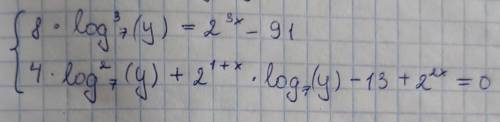 8 · log³₇(y) = 2³ˣ - 91
4 · log²₇(y) + 2¹⁺ˣ · log₇(y) - 13 + 2²ˣ = 0